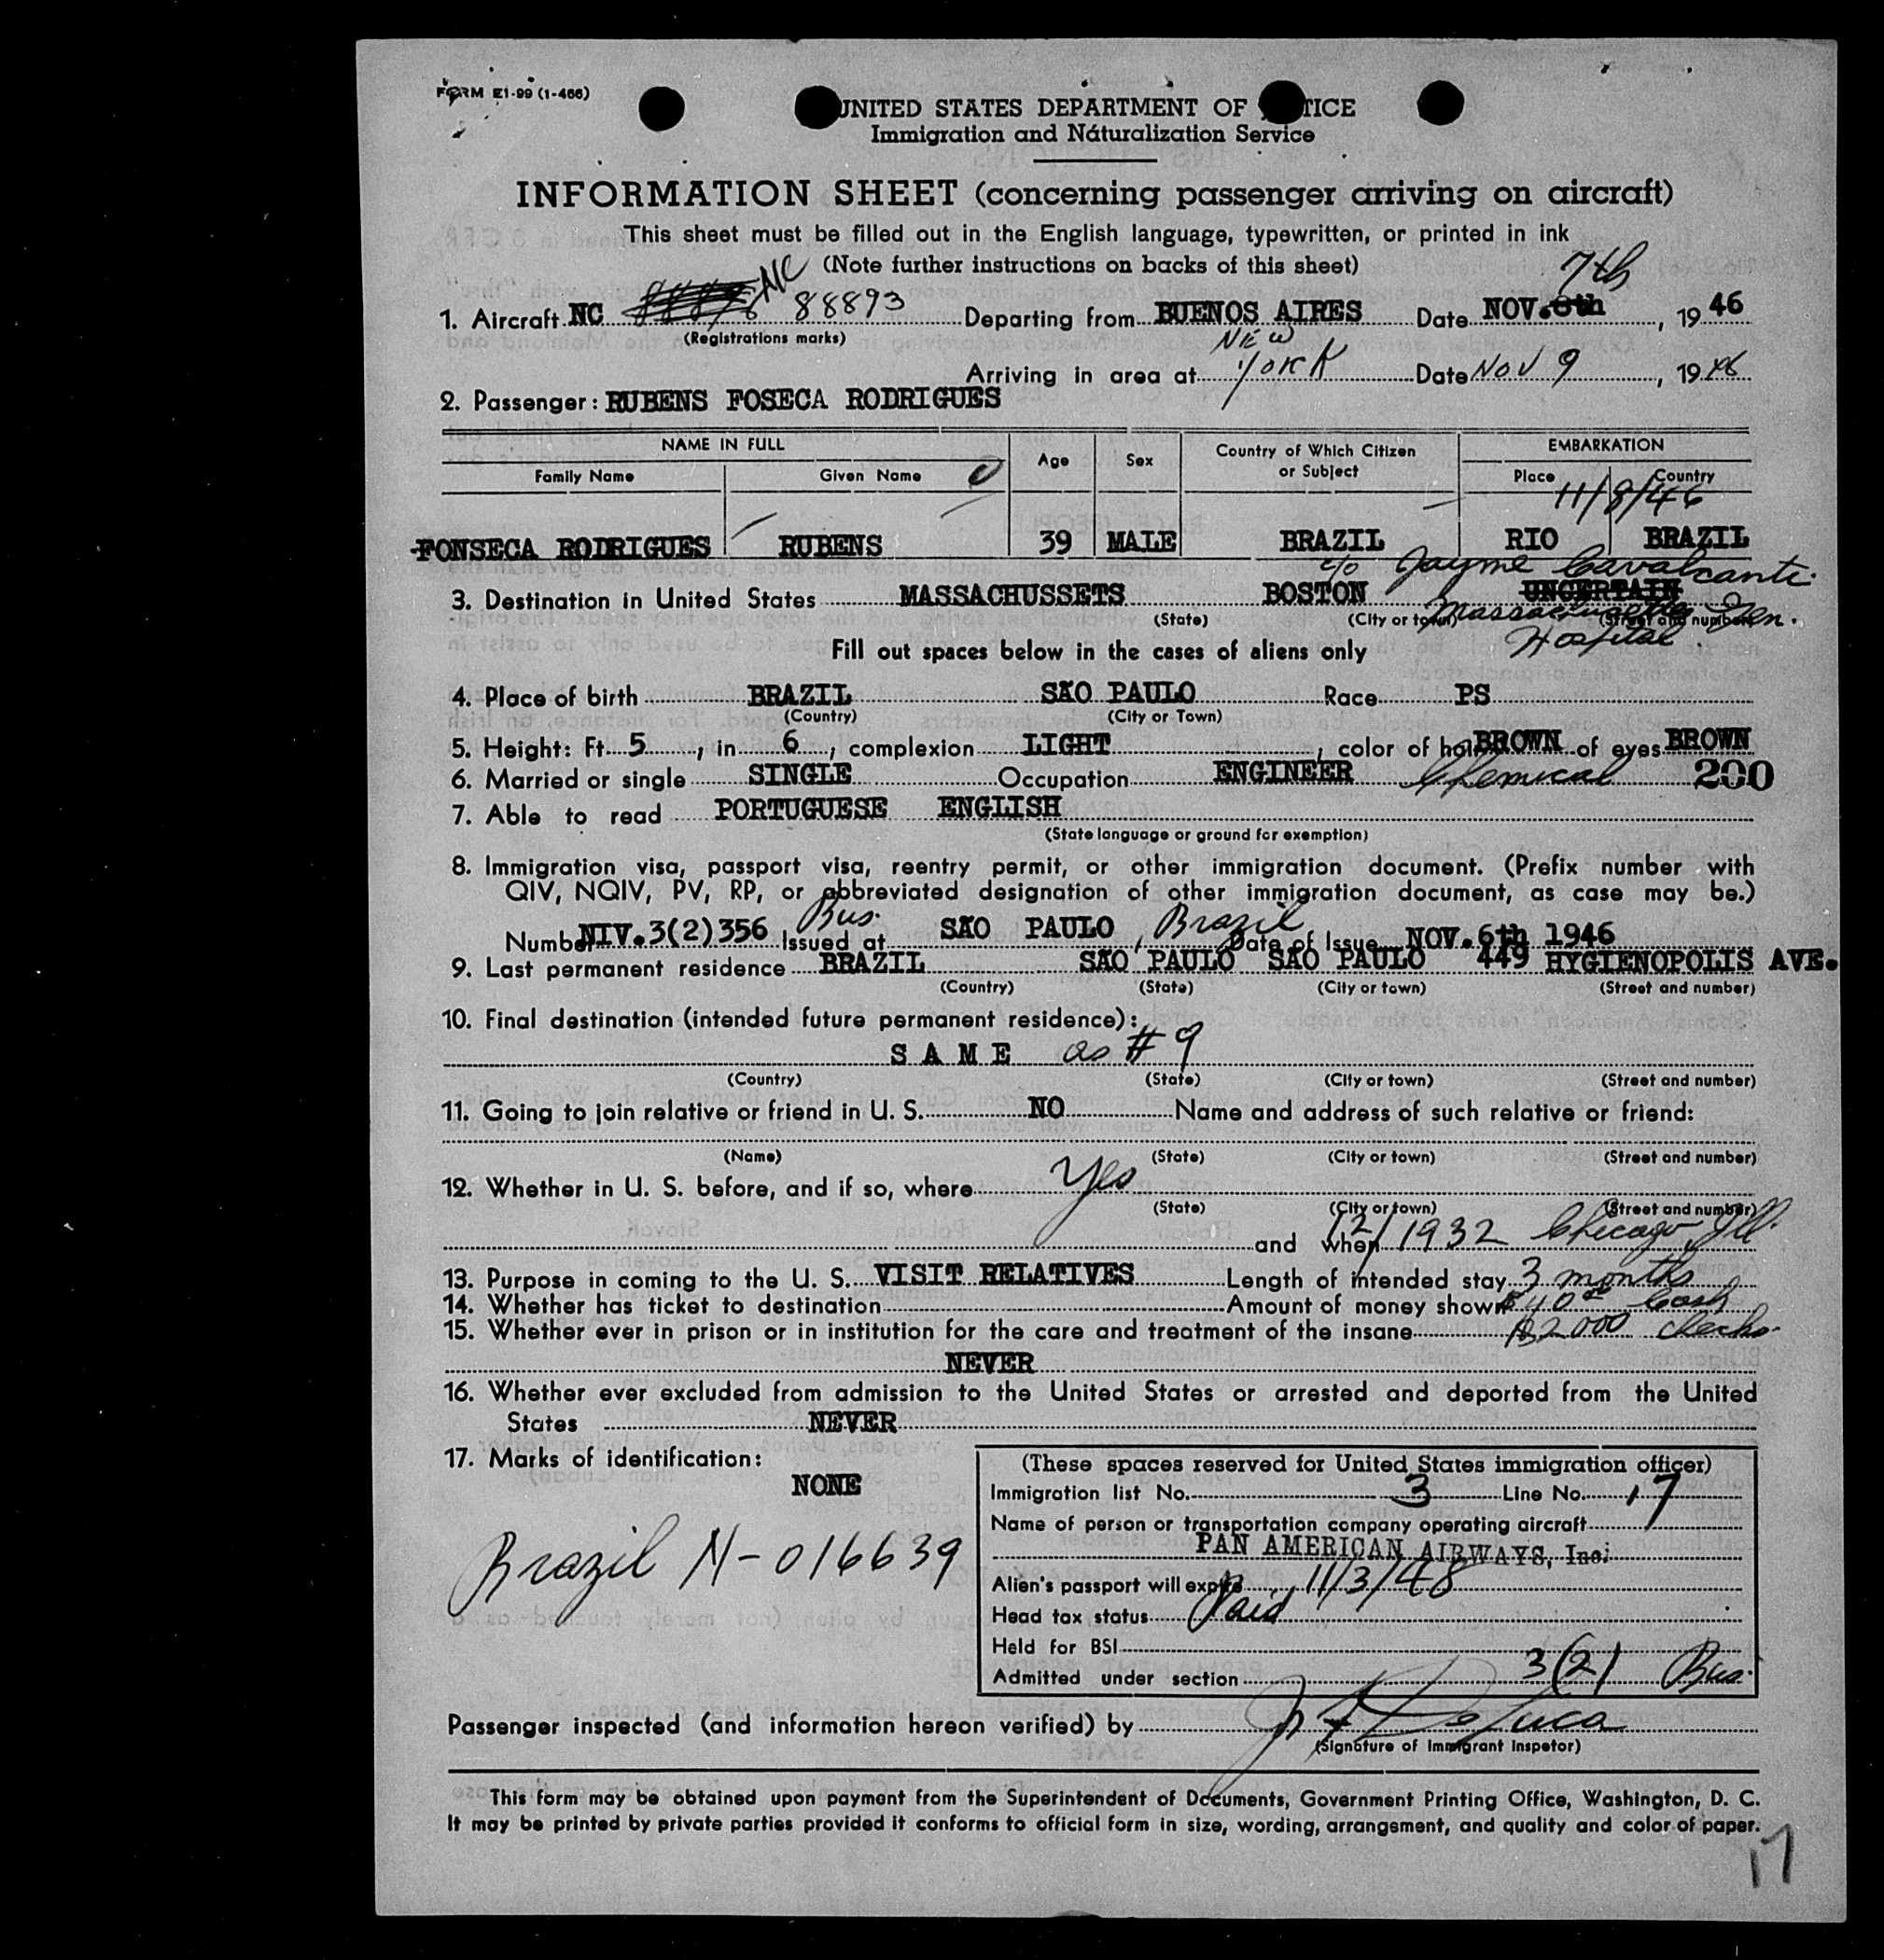 FORM E1-99 (1-466)
UNITED STATES DEPARTMENT OF TICE
Immigration and Naturalization Service
INFORMATION SHEET (concerning passenger arriving on aircraft)
This sheet must be filled out in the English language, typewritten, or printed in ink
(Note further instructions on backs of this sheet)
7th
1. Aircraft NC NC 88893 Departing from BUENOS AIRES Date NOV. 8th, 19 46
(Registrations marks)
Arriving in area at NEW YORK Date Nov 9, 19 46
2. Passenger: RUBENS FOSECA RODRIGUES
NAME IN FULL Age Sex Country of Which Citizen or Subject EMBARKATION
Family Name Given Name Place Country
11/8/46
FONSECA RODRIGUES RUBENS 39 MALE BRAZIL RIO BRAZIL
c/o Jayme Cavalcanti
3. Destination in United States MASSACHUSSETS BOSTON UNCERTAIN
(State) (City or town) (Street and number)
Massachusetts Gen.
Hospital.
Fill out spaces below in the cases of aliens only
4. Place of birth BRAZIL SÃO PAULO Race PS
(Country) (City or Town)
5. Height: Ft. 5, in 6, complexion LIGHT, color of hair BROWN of eyes BROWN
6. Married or single SINGLE Occupation ENGINEER Chemical 200
7. Able to read PORTUGUESE ENGLISH
(State language or ground for exemption)
8. Immigration visa, passport visa, reentry permit, or other immigration document. (Prefix number with
QIV, NQIV, PV, RP, or abbreviated designation of other immigration document, as case may be.)
Number NIV.3(2)356 Bus. Issued at SÃO PAULO, Brazil Date of Issue NOV. 6th 1946
9. Last permanent residence BRAZIL SÃO PAULO SÃO PAULO 449 HYGIENOPOLIS AVE.
(Country) (State) (City or town) (Street and number)
10. Final destination (intended future permanent residence):
S A M E as # 9
(Country) (State) (City or town) (Street and number)
11. Going to join relative or friend in U. S. NO Name and address of such relative or friend:
(Name) (State) (City or town) (Street and number)
12. Whether in U. S. before, and if so, where Yes
(State) (City or town) (Street and number)
and when 12/1932 Chicago, Ill.
13. Purpose in coming to the U. S. VISIT RELATIVES Length of intended stay 3 months
14. Whether has ticket to destination Amount of money shown $40 00 Cash
15. Whether ever in prison or in institution for the care and treatment of the insane $2000 checks.
NEVER
16. Whether ever excluded from admission to the United States or arrested and deported from the United
States NEVER
17. Marks of identification:
NONE
Brazil N-016639
(These spaces reserved for United States immigration officer)
Immigration list No. 3 Line No. 17
Name of person or transportation company operating aircraft
PAN AMERICAN AIRWAYS, Inc.
Alien's passport will expire 11/3/48
Head tax status Paid
Held for BSI
Admitted under section 3(2) Bus.
Passenger inspected (and information hereon verified) by
(Signature of Immigrant Inspetor)
This form may be obtained upon payment from the Superintendent of Documents, Government Printing Office, Washington, D. C.
It may be printed by private parties provided it conforms to official form in size, wording, arrangement, and quality and color of paper.
17